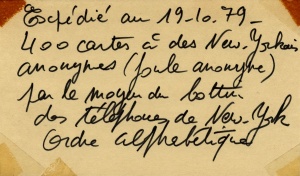 Expédié au 19-10.79-
400 cartes à des New-Yorkais
anonymes (foule anonyme)
par le moyen du bottin
des téléphones de New-York
(ordre alphabétique)